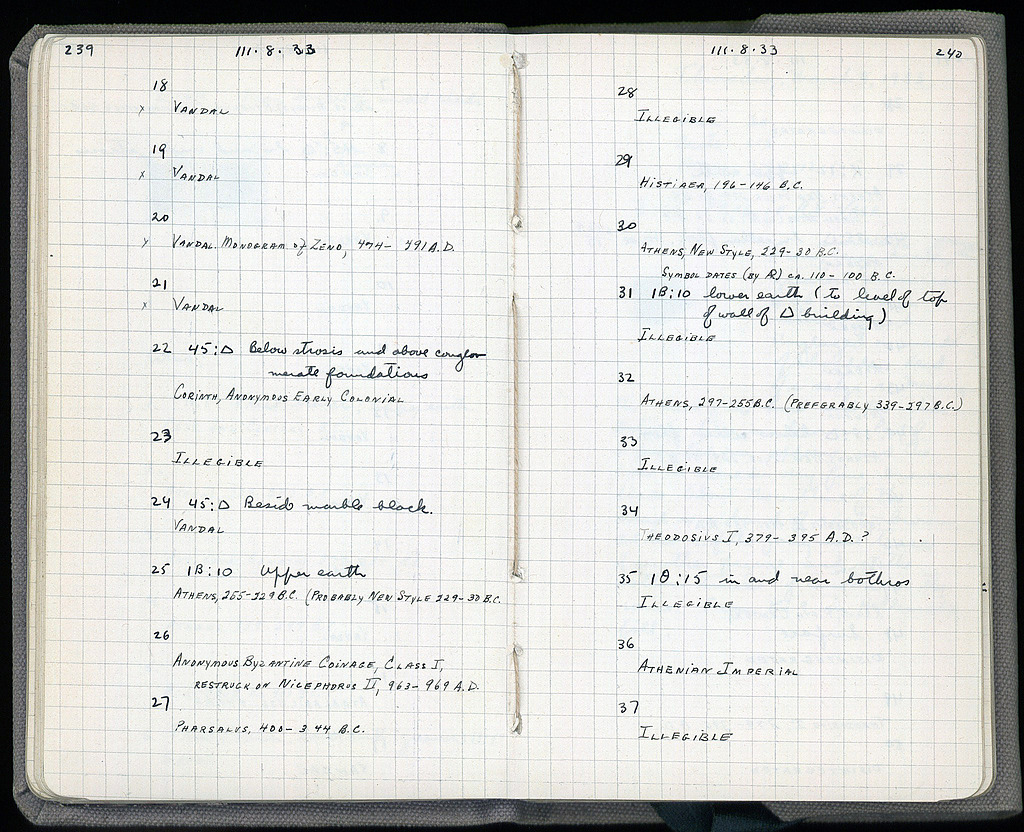 239
111·8·33
18
x VANDAL
19
x VANDAL
20
x VANDAL. MONOGRAM of ZENO, 474- 491 A.D.
21
x VANDAL
22 45:Δ Below strosis and above conglo-
merate foundations
CORINTH, ANONYMOUS EARLY COLONIAL
23
ILLEGIBLE
24 45:Δ Beside marble block.
VANDAL
25 1B:10 Upper earth
ATHENS, 255-229 B.C. (PROBABLY NEW STYLE 229-30 B.C.
26
ANONYMOUS BYZANTINE COINAGE, CLASS I,
RESTRUCK ON NICEPHORUS II, 963-969 A.D.
27
PHARSALUS, 400-344 B.C.
111·8·33
240
28
ILLEGIBLE
29
HISTIAEA, 196-146 B.C.
30
ATHENS, NEW STYLE, 229-30 B.C.
SYMBOL DATES (BY AR) ca. 110-100 B.C.
31 1B:10 lower earth (to level of top
of wall of Δ building)
ILLEGIBLE
32
ATHENS, 297-255 B.C. (PREFERABLY 339-297 B.C.)
33
ILLEGIBLE
34
THEODOSIUS I, 379-395 A.D.?
35 1Θ:15 in and near bothros
ILLEGIBLE
36
ATHENIAN IMPERIAL
37
ILLEGIBLE